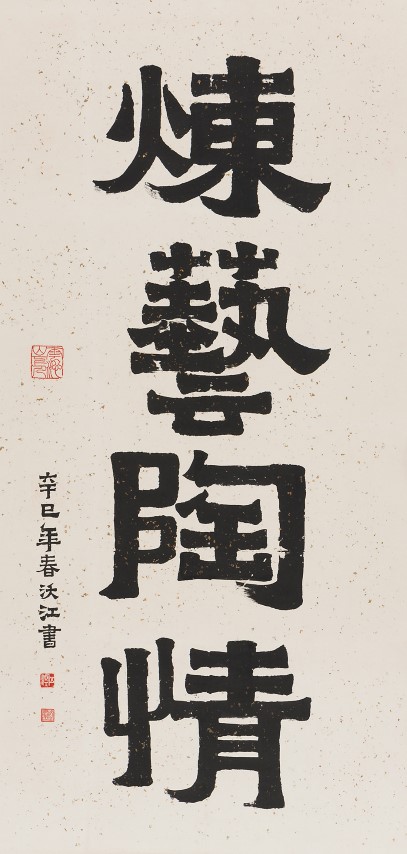 煉藝陶情
辛巳年春沃江書